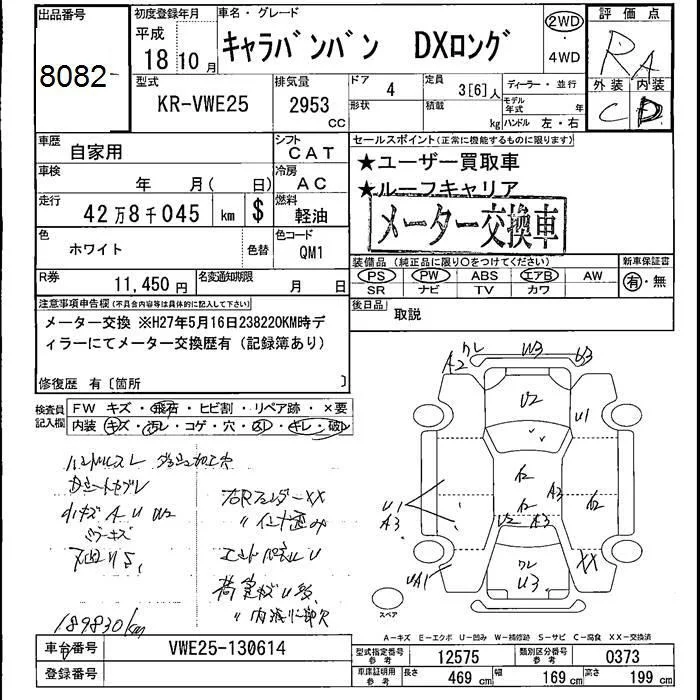 出品番号
8082
初度登録年月
平成
18年10月
車名・グレード
キャラバンバン DXロング
2WD
・
4WD
評価点
RA
外装 内装
C D
型式
KR-VWE25
排気量
2953 CC
ドア
4
定員
3[6]人
ディーラー・並行
形状
積載
kg
モデル年式 年
ハンドル 左・右
車歴
自家用
シフト
CAT
車検
年 月( 日)
冷房
AC
走行
42万8千045 km $
燃料
軽油
色
ホワイト
色替
色コード
QM1
R券
11,450円
名変通知期限
月 日
セールスポイント(正常に機能するものに限ります)
★ユーザー買取車
★ルーフキャリア
メーター交換車
装備品 (純正品に限り○をつけてください)
新車保証書
PS PW ABS エアB AW
SR ナビ TV カワ
有・無
後日品
取説
注意事項申告欄(不具合内容等は具体的に記入して下さい)
メーター交換 ※H27年5月16日238220KM時デ
ィラーにてメーター交換歴有(記録簿あり)
修復歴 有〔箇所 〕
検査員
記入欄
FW キズ・飛石・ヒビ割・リペア跡・×要
内装 キズ・汚レ・コゲ・穴・スレ・キレ・破レ
小キズ A U W2
右Rフェンダー XX
〃 インナー歪み
エンドパネル U
189830km
A2 ワレ W3 U3
U2
U1
A2
A2
A3
A2
U1
A3
U2 A3
UA1
ワレ
U3
XX
スペア
A-キズ E-エクボ U-凹み W-補修跡 S-サビ C-腐食 XX-交換済
車台番号
VWE25-130614
登録番号
型式指定番号
参考
12575
類別区分番号
参考
0373
車庫証明用
参考
長さ 469 cm 幅 169 cm 高さ 199 cm